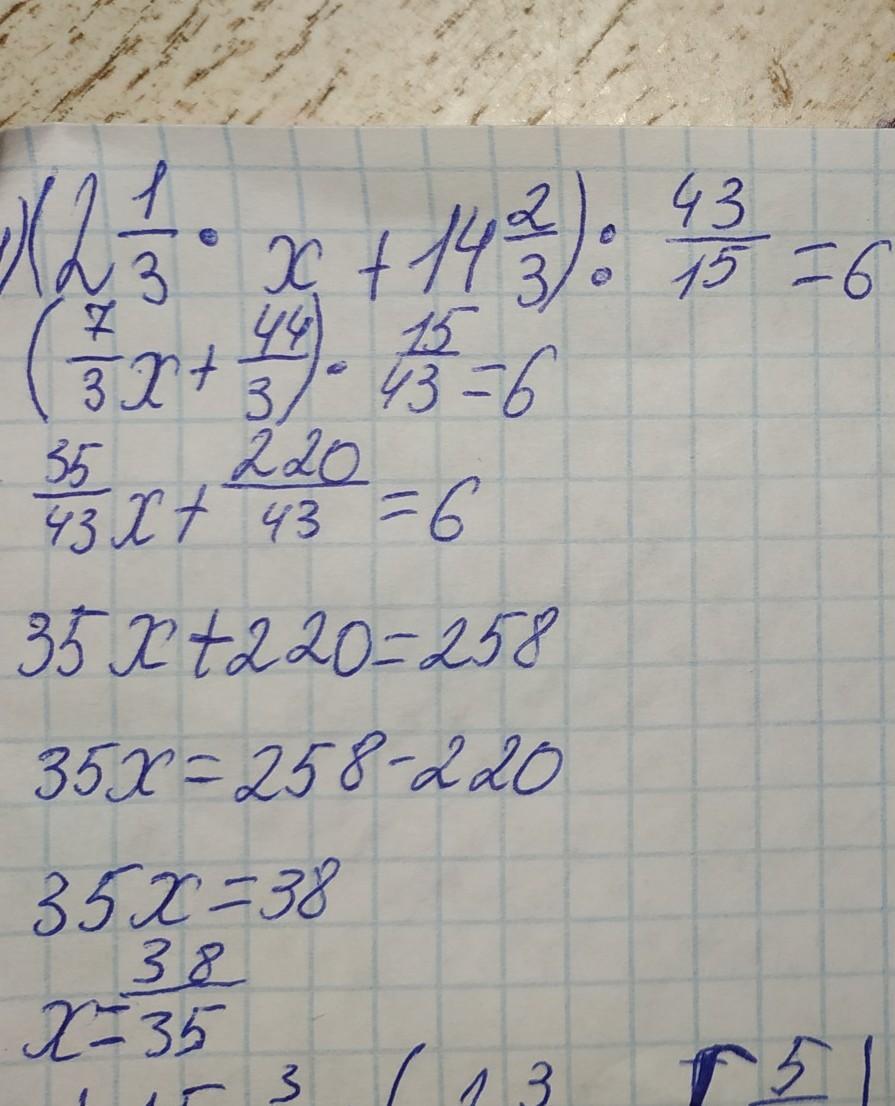 1)(2 1/3 · x + 14 2/3) : 43/15 = 6
(7/3 x + 44/3) · 15/43 = 6
35/43 x + 220/43 = 6
35x + 220 = 258
35x = 258 - 220
35x = 38
x = 38/35